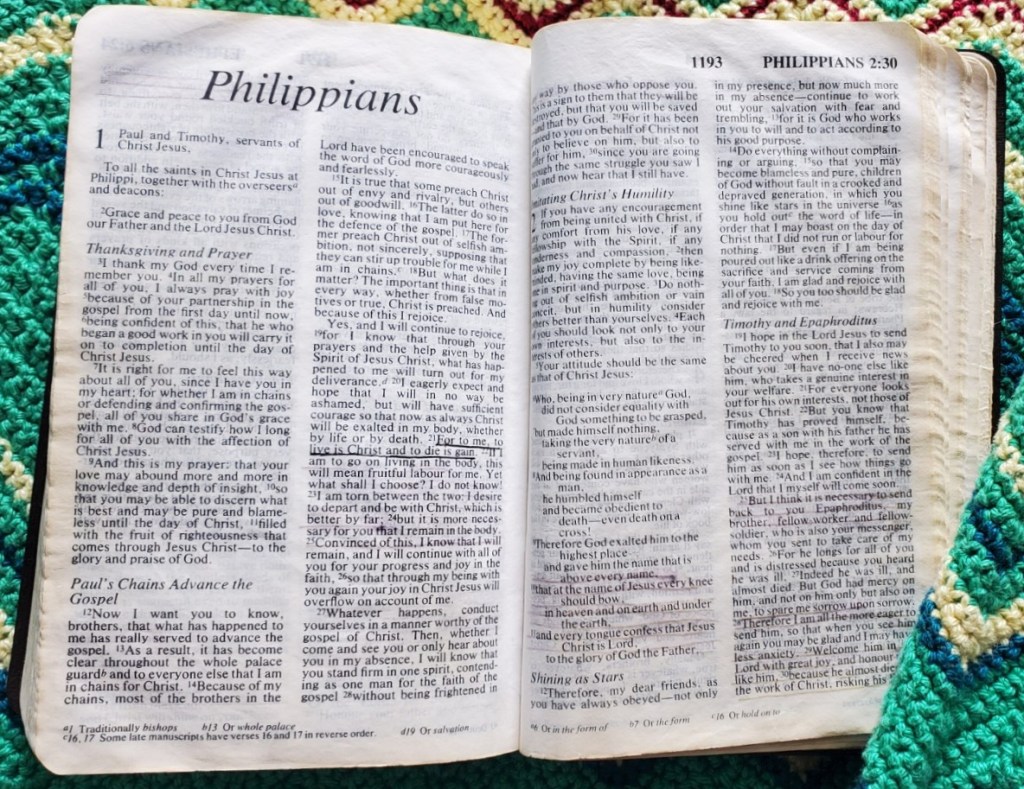 Philippians
1 Paul and Timothy, servants of
Christ Jesus,
To all the saints in Christ Jesus at
Philippi, together with the overseersa
and deacons:
2Grace and peace to you from God
our Father and the Lord Jesus Christ.
Thanksgiving and Prayer
3I thank my God every time I re-
member you. 4In all my prayers for
all of you, I always pray with joy
5because of your partnership in the
gospel from the first day until now,
6being confident of this, that he who
began a good work in you will carry it
on to completion until the day of
Christ Jesus.
7It is right for me to feel this way
about all of you, since I have you in
my heart; for whether I am in chains
or defending and confirming the gos-
pel, all of you share in God's grace
with me. 8God can testify how I long
for all of you with the affection of
Christ Jesus.
9And this is my prayer: that your
love may abound more and more in
knowledge and depth of insight, 10so
that you may be able to discern what
is best and may be pure and blame-
less until the day of Christ, 11filled
with the fruit of righteousness that
comes through Jesus Christ—to the
glory and praise of God.
Paul's Chains Advance the
Gospel
12Now I want you to know,
brothers, that what has happened to
me has really served to advance the
gospel. 13As a result, it has become
clear throughout the whole palace
guardb and to everyone else that I am
in chains for Christ. 14Because of my
chains, most of the brothers in the
Lord have been encouraged to speak
the word of God more courageously
and fearlessly.
15It is true that some preach Christ
out of envy and rivalry, but others
out of goodwill. 16The latter do so in
love, knowing that I am put here for
the defence of the gospel. 17The for-
mer preach Christ out of selfish am-
bition, not sincerely, supposing that
they can stir up trouble for me while I
am in chains.c 18But what does it
matter? The important thing is that in
every way, whether from false mo-
tives or true, Christ is preached. And
because of this I rejoice.
Yes, and I will continue to rejoice,
19for I know that through your
prayers and the help given by the
Spirit of Jesus Christ, what has hap-
pened to me will turn out for my
deliverance.d 20I eagerly expect and
hope that I will in no way be
ashamed, but will have sufficient
courage so that now as always Christ
will be exalted in my body, whether
by life or by death. 21For to me, to
live is Christ and to die is gain. 22If I
am to go on living in the body, this
will mean fruitful labour for me. Yet
what shall I choose? I do not know!
23I am torn between the two: I desire
to depart and be with Christ, which is
better by far; 24but it is more neces-
sary for you that I remain in the body.
25Convinced of this, I know that I will
remain, and I will continue with all of
you for your progress and joy in the
faith, 26so that through my being with
you again your joy in Christ Jesus will
overflow on account of me.
27Whatever happens, conduct
yourselves in a manner worthy of the
gospel of Christ. Then, whether I
come and see you or only hear about
you in my absence, I will know that
you stand firm in one spirit, contend-
ing as one man for the faith of the
gospel 28without being frightened in
a1 Traditionally bishops b13 Or whole palace
c16, 17 Some late manuscripts have verses 16 and 17 in reverse order. d19 Or salvation
1193 PHILIPPIANS 2:30
way by those who oppose you.
is a sign to them that they will be
but that you will be saved
that by God. 29For it has been
to you on behalf of Christ not
to believe on him, but also to
for him, 30since you are going
the same struggle you saw I
and now hear that I still have.
Christ's Humility
If you have any encouragement
from being united with Christ, if
comfort from his love, if any
with the Spirit, if any
and compassion, 2then
my joy complete by being like-
having the same love, being
in spirit and purpose. 3Do noth-
out of selfish ambition or vain
but in humility consider
others better than yourselves. 4Each
you should look not only to your
interests, but also to the in-
of others.
Your attitude should be the same
that of Christ Jesus:
Who, being in very naturea God,
did not consider equality with
God something to be grasped,
but made himself nothing,
taking the very natureb of a
servant,
being made in human likeness.
And being found in appearance as a
man,
he humbled himself
and became obedient to
death—even death on a
cross!
Therefore God exalted him to the
highest place
and gave him the name that is
above every name,
that at the name of Jesus every knee
should bow,
in heaven and on earth and under
the earth,
and every tongue confess that Jesus
Christ is Lord,
to the glory of God the Father.
Shining as Stars
12Therefore, my dear friends, as
you have always obeyed—not only
in my presence, but now much more
in my absence—continue to work
out your salvation with fear and
trembling, 13for it is God who works
in you to will and to act according to
his good purpose.
14Do everything without complain-
ing or arguing, 15so that you may
become blameless and pure, children
of God without fault in a crooked and
depraved generation, in which you
shine like stars in the universe 16as
you hold outc the word of life—in
order that I may boast on the day of
Christ that I did not run or labour for
nothing. 17But even if I am being
poured out like a drink offering on the
sacrifice and service coming from
your faith, I am glad and rejoice with
all of you. 18So you too should be glad
and rejoice with me.
Timothy and Epaphroditus
19I hope in the Lord Jesus to send
Timothy to you soon, that I also may
be cheered when I receive news
about you. 20I have no-one else like
him, who takes a genuine interest in
your welfare. 21For everyone looks
out for his own interests, not those of
Jesus Christ. 22But you know that
Timothy has proved himself, be-
cause as a son with his father he has
served with me in the work of the
gospel. 23I hope, therefore, to send
him as soon as I see how things go
with me. 24And I am confident in the
Lord that I myself will come soon.
25But I think it is necessary to send
back to you Epaphroditus, my
brother, fellow-worker and fellow-
soldier, who is also your messenger,
whom you sent to take care of my
needs. 26For he longs for all of you
and is distressed because you heard
he was ill. 27Indeed he was ill, and
almost died. But God had mercy on
him, and not on him only but also on
me, to spare me sorrow upon sorrow.
28Therefore I am all the more eager to
send him, so that when you see him
again you may be glad and I may have
less anxiety. 29Welcome him in the
Lord with great joy, and honour
like him, 30because he almost died
the work of Christ, risking his
a6 Or in the form of b7 Or the form c16 Or hold on to